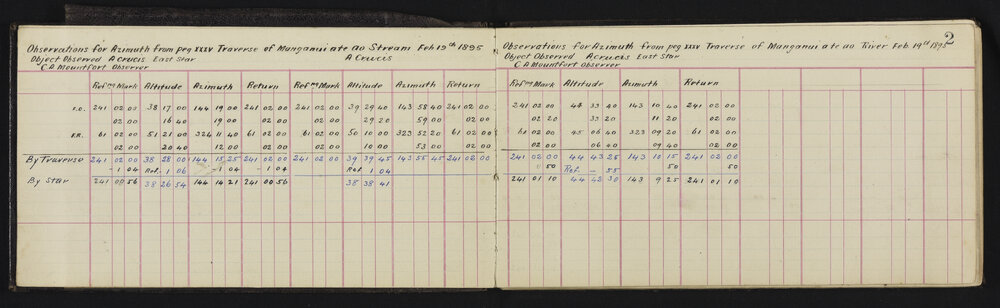 Observations for Azimuth from peg XXXV Traverse of Manganui ate ao Stream Feb 19th 1895
Object Observed A Crucis East Star A Crucis
C.A Mountfort Observer
Ref ng Mark Altitude Azimuth Return Ref ng Mark Altitude Azimuth Return
F.L. 241 02 00 38 17 00 144 19 00 241 02 00 241 02 00 39 29 40 143 58 40 241 02 00
02 00 16 40 19 00 02 00 02 00 29 20 59 00 02 00
F.R. 61 02 00 51 21 00 324 11 40 61 02 00 61 02 00 50 10 00 323 52 20 61 02 00
02 00 20 40 12 00 02 00 02 00 10 00 53 00 02 00
By Traverse 241 02 00 38 28 00 144 15 25 241 02 00 241 02 00 39 39 45 143 55 45 241 02 00
- 1 04 Ref. 1 06 - 1 04 - 1 04 Ref. 1 04
By Star 241 00 56 38 26 54 144 14 21 241 00 56 38 38 41
2
Observations for Azimuth from peg XXXV Traverse of Manganui a te ao River Feb 19th 1895
Object Observed A Crucis East Star
C A Mountfort Observer
Ref ng Mark Altitude Azimuth Return
241 02 00 44 33 40 143 10 40 241 02 00
02 20 33 20 11 20 02 00
61 02 00 45 06 40 323 09 20 61 02 00
02 00 06 40 09 40 02 00
241 02 00 44 43 25 143 10 15 241 02 00
0 50 Ref. - 55 50 50
241 01 10 44 42 30 143 9 25 241 01 10